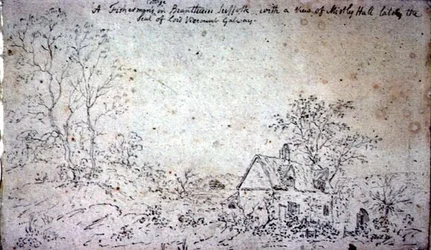 Cottage
A Fisherman's in Brantham Suffolk with a View of Mistly Hall lately the
Seat of Lord Viscount Galway.